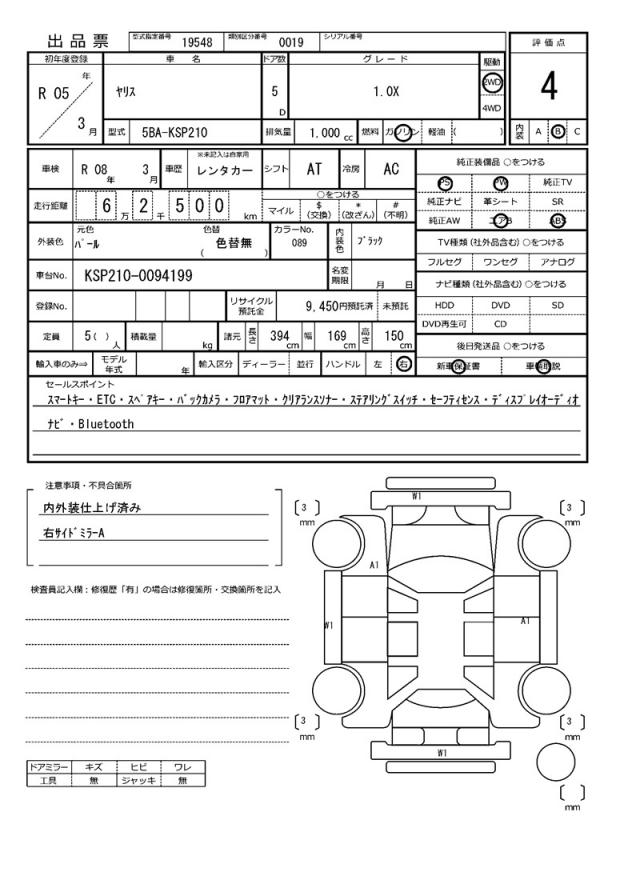 出品票
型式指定番号 19548 類別区分番号 0019 シリアル番号
初年度登録 車 名 ドア数 グレード 駆動 評価点
R 05 年 3 月 ヤリス 5 D 1.0X 2WD 4WD 4
型式 5BA-KSP210 排気量 1,000 cc 燃料 ガソリン 軽油 ( ) 内装 A B C
車検 R 08 年 3 月 車歴 ※未記入は自家用 レンタカー シフト AT 冷房 AC
走行距離 6 万 2 千 5 0 0 km ○をつける
マイル $ (交換) * (改ざん) # (不明)
外装色 元色 パール 色替 色替無 ( ) カラーNo. 089 内装色 ブラック
車台No. KSP210-0094199 名変期限 月 日
登録No. リサイクル預託金 9,450円預託済 未預託
定員 5( ) 人 積載量 kg 諸元 長さ 394 cm 幅 169 cm 高さ 150 cm
輸入車のみ⇒ モデル年式 年 輸入区分 ディーラー 並行 ハンドル 左 右
純正装備品 ○をつける
PS PW 純正TV
純正ナビ 革シート SR
純正AW エアB ABS
TV種類 (社外品含む) ○をつける
フルセグ ワンセグ アナログ
ナビ種類 (社外品含む) ○をつける
HDD DVD SD
DVD再生可 CD
後日発送品 ○をつける
新車保証書 車輌取説
セールスポイント
スマートキー・ETC・スペアキー・バックカメラ・フロアマット・クリアランスソナー・ステアリングスイッチ・セーフティセンス・ディスプレイオーディオ
ナビ・Bluetooth
注意事項・不具合箇所
内外装仕上げ済み
右サイドミラーA
検査員記入欄：修復歴「有」の場合は修復箇所・交換箇所を記入
ドアミラー キズ ヒビ ワレ
工具 無 ジャッキ 無
W1
[ 3 ] mm [ 3 ] mm
A1
W1 A1
[ 3 ] mm [ 3 ] mm
W1
[ ] mm